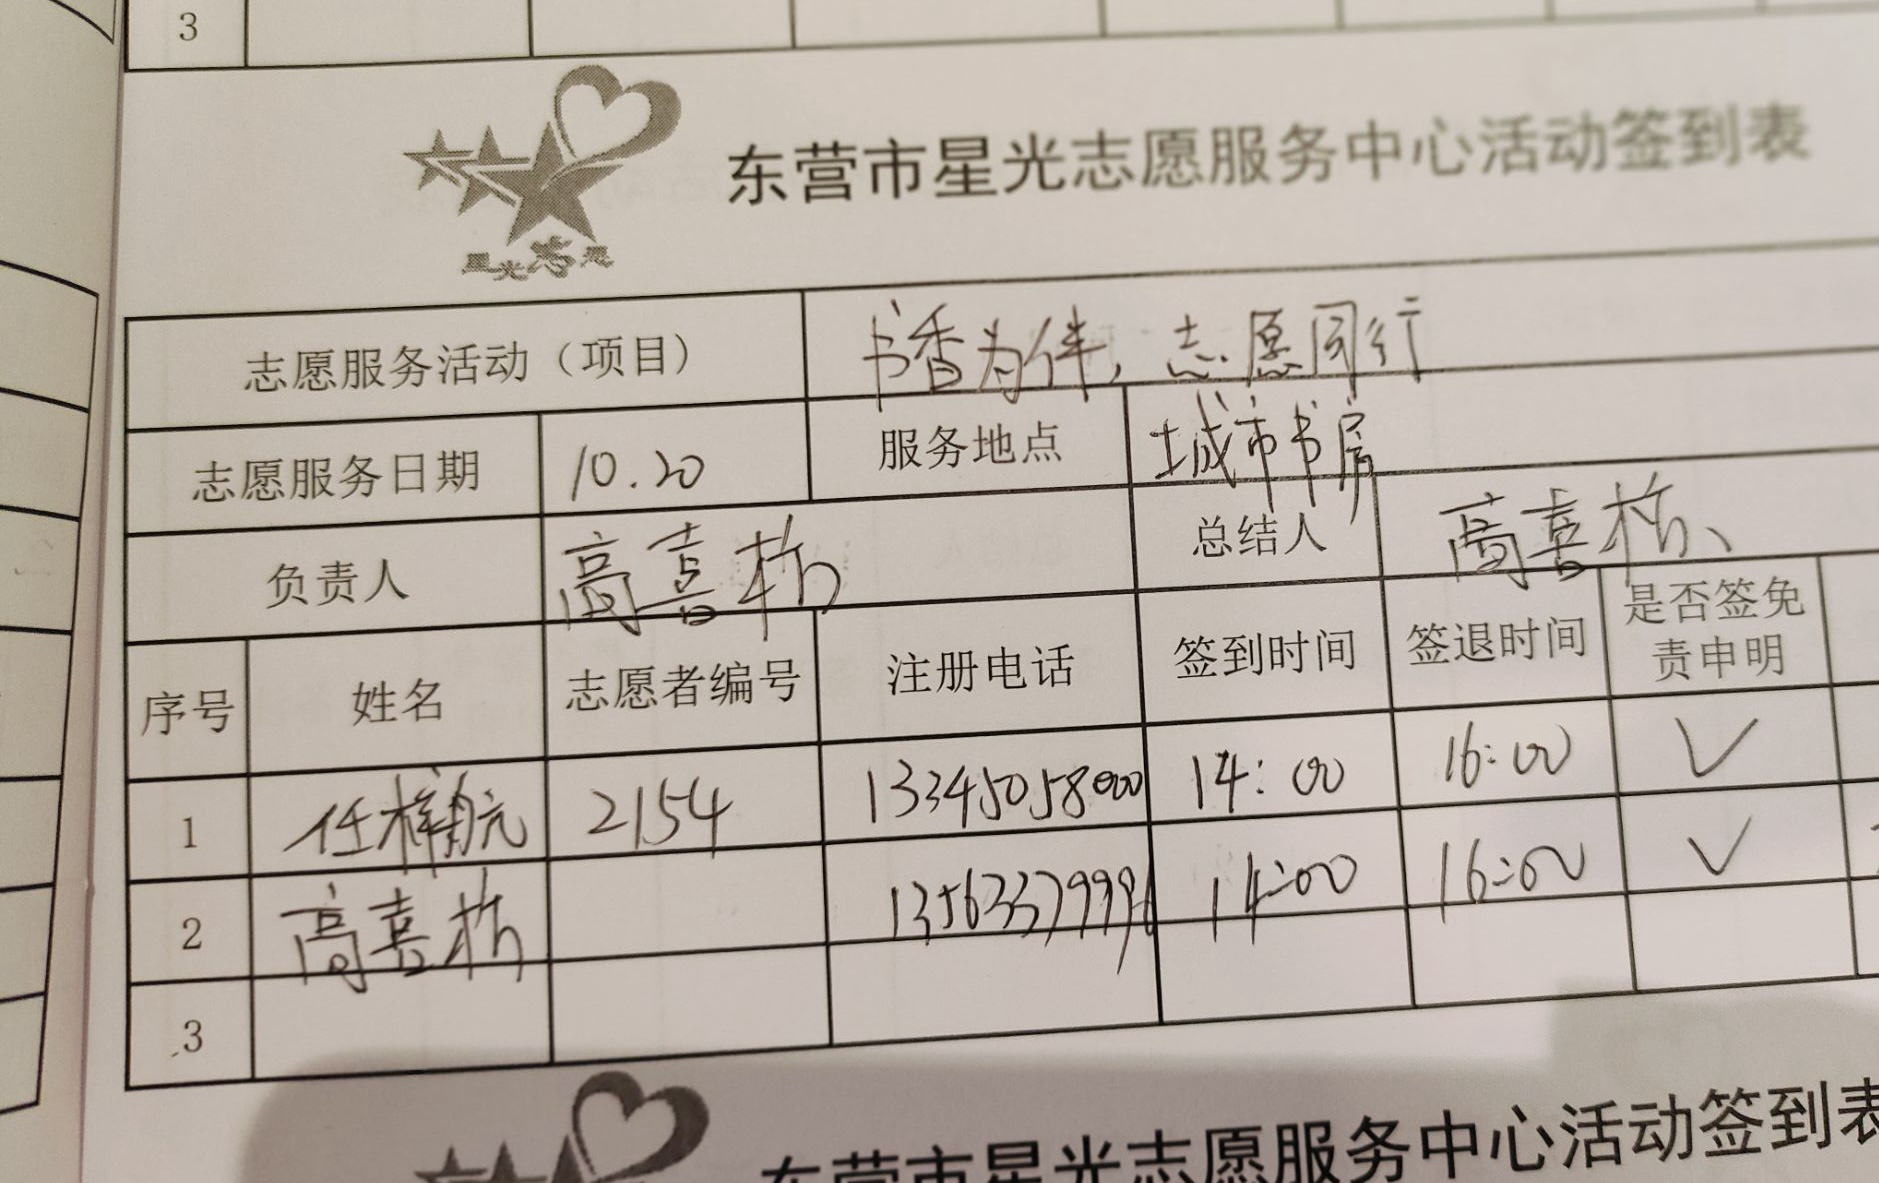 3
星光志愿
东营市星光志愿服务中心活动签到表
志愿服务活动（项目） 书香为伴，志愿同行
志愿服务日期 10.20 服务地点 城市书房
负责人 高喜栋 总结人 高喜栋、
序号 姓名 志愿者编号 注册电话 签到时间 签退时间 是否签免责申明
1 任梓航 2154 13345058000 14:00 16:00 ✓
2 高喜栋 13563379996 14:00 16:00 ✓
3
东营市星光志愿服务中心活动签到表